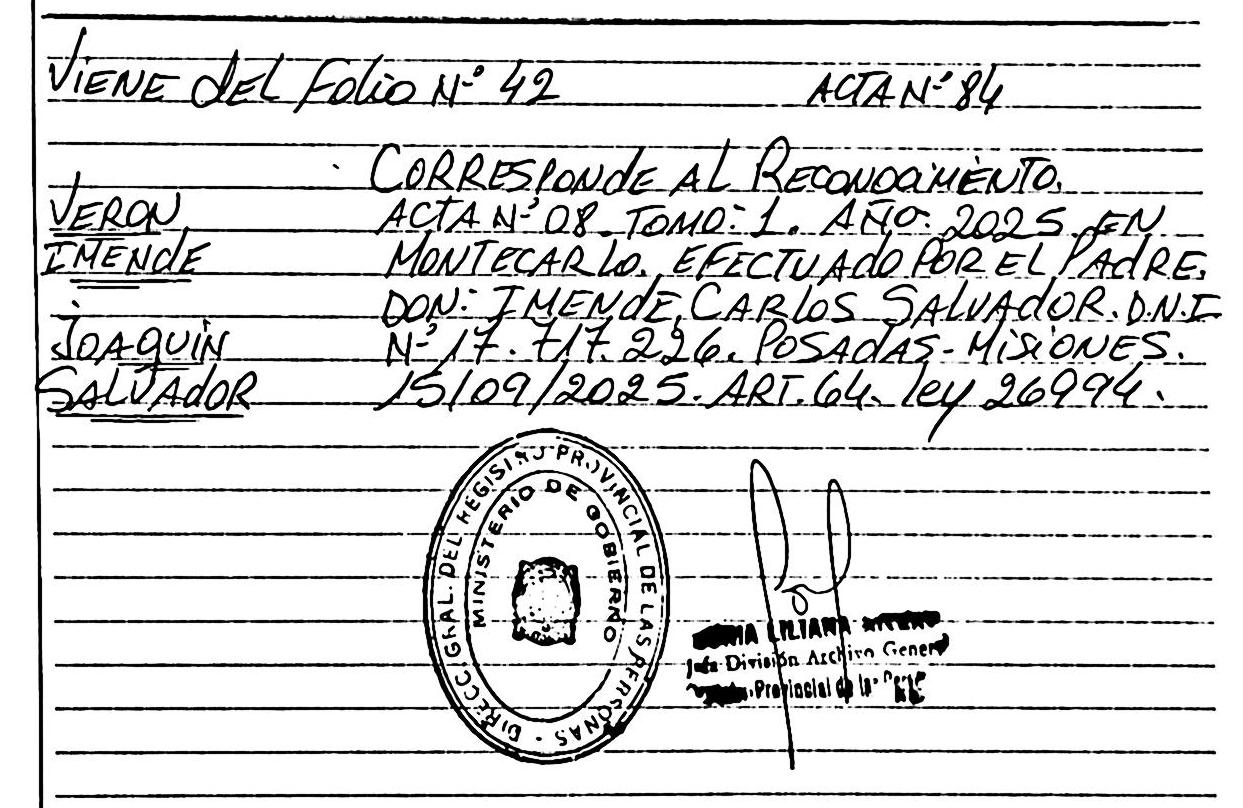 VIENE del Folio Nº 42 ACTA Nº 84
CORRESPONDE AL RECONOCIMIENTO.
VERON ACTA Nº 08. TOMO: 1. AÑO: 2025. EN
IMENDE MONTECARLO. EFECTUADO POR EL PADRE.
DON: IMENDE, CARLOS SALVADOR. D.N.I
JOAQUIN Nº 17.717.226. POSADAS-MISIONES.
SALVADOR 15/09/2025. ART. 64. ley 26994.
DIRECC. GRAL. DEL REGISTRO PROVINCIAL DE LAS PERSONAS -
MINISTERIO DE GOBIERNO
LILIANA
Jefa División Archivo General
Provincial de las